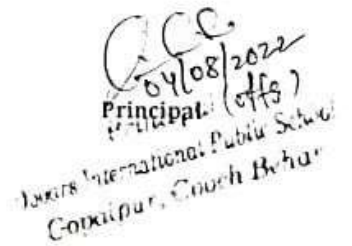 04/08/2022
Principal (offg)
International Public School
Gopalpur, Cooch Behar